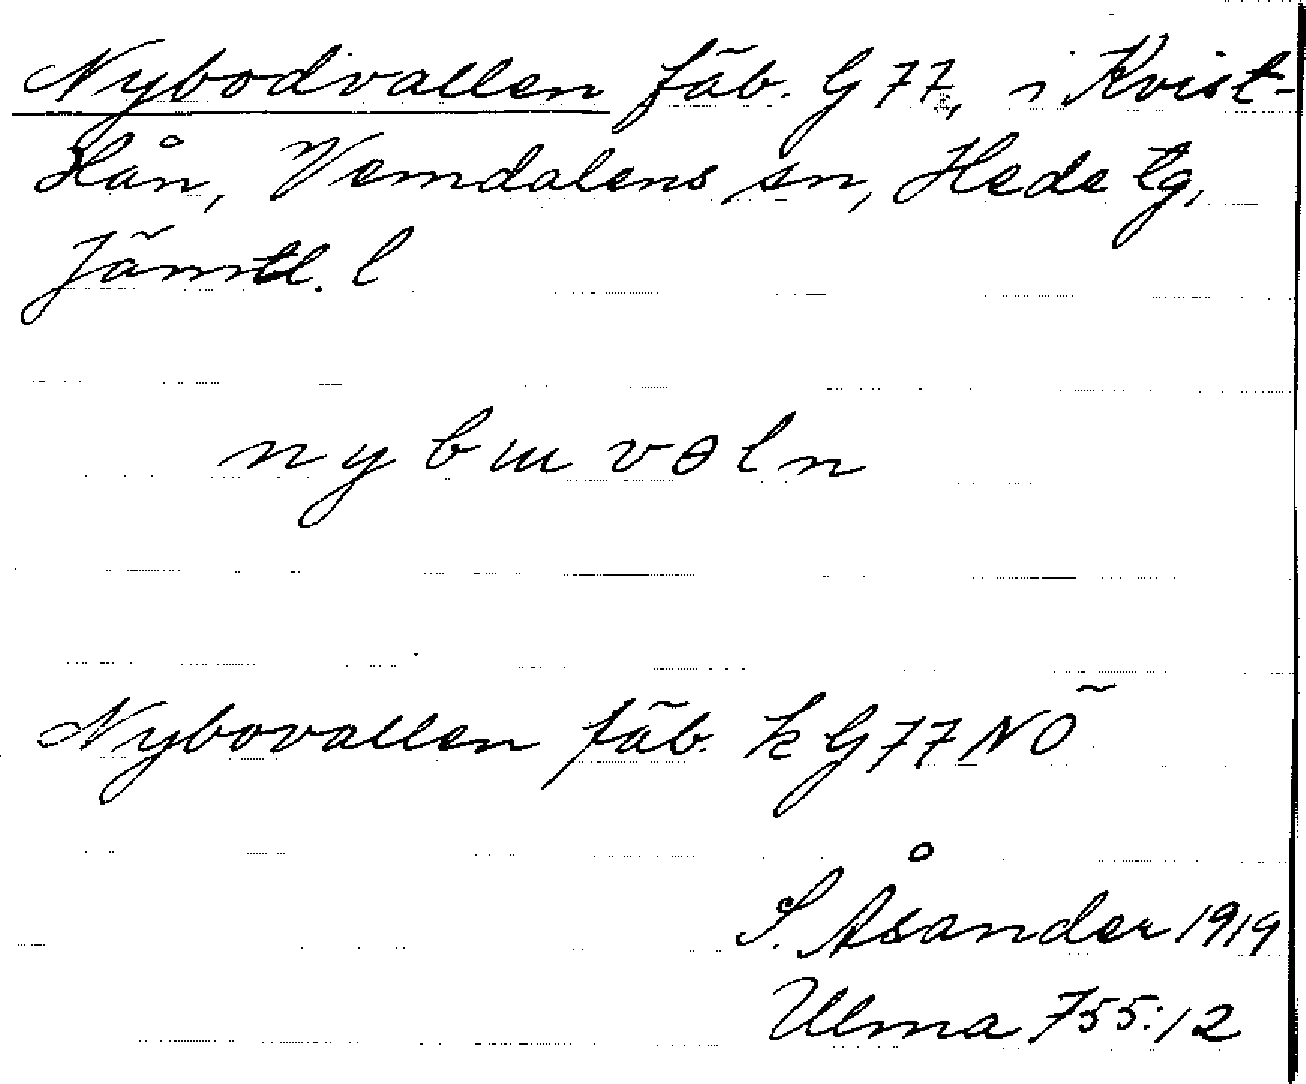 Nybodvallen fäb. G 77, i Kvist-
hån, Vemdalens sn, Hede tg,
Jämtl. l
n y b ɯ v ɵ l n
Nybovallen fäb. k G 77 NÖ
S. Åsander 1919
Ulma 755:12